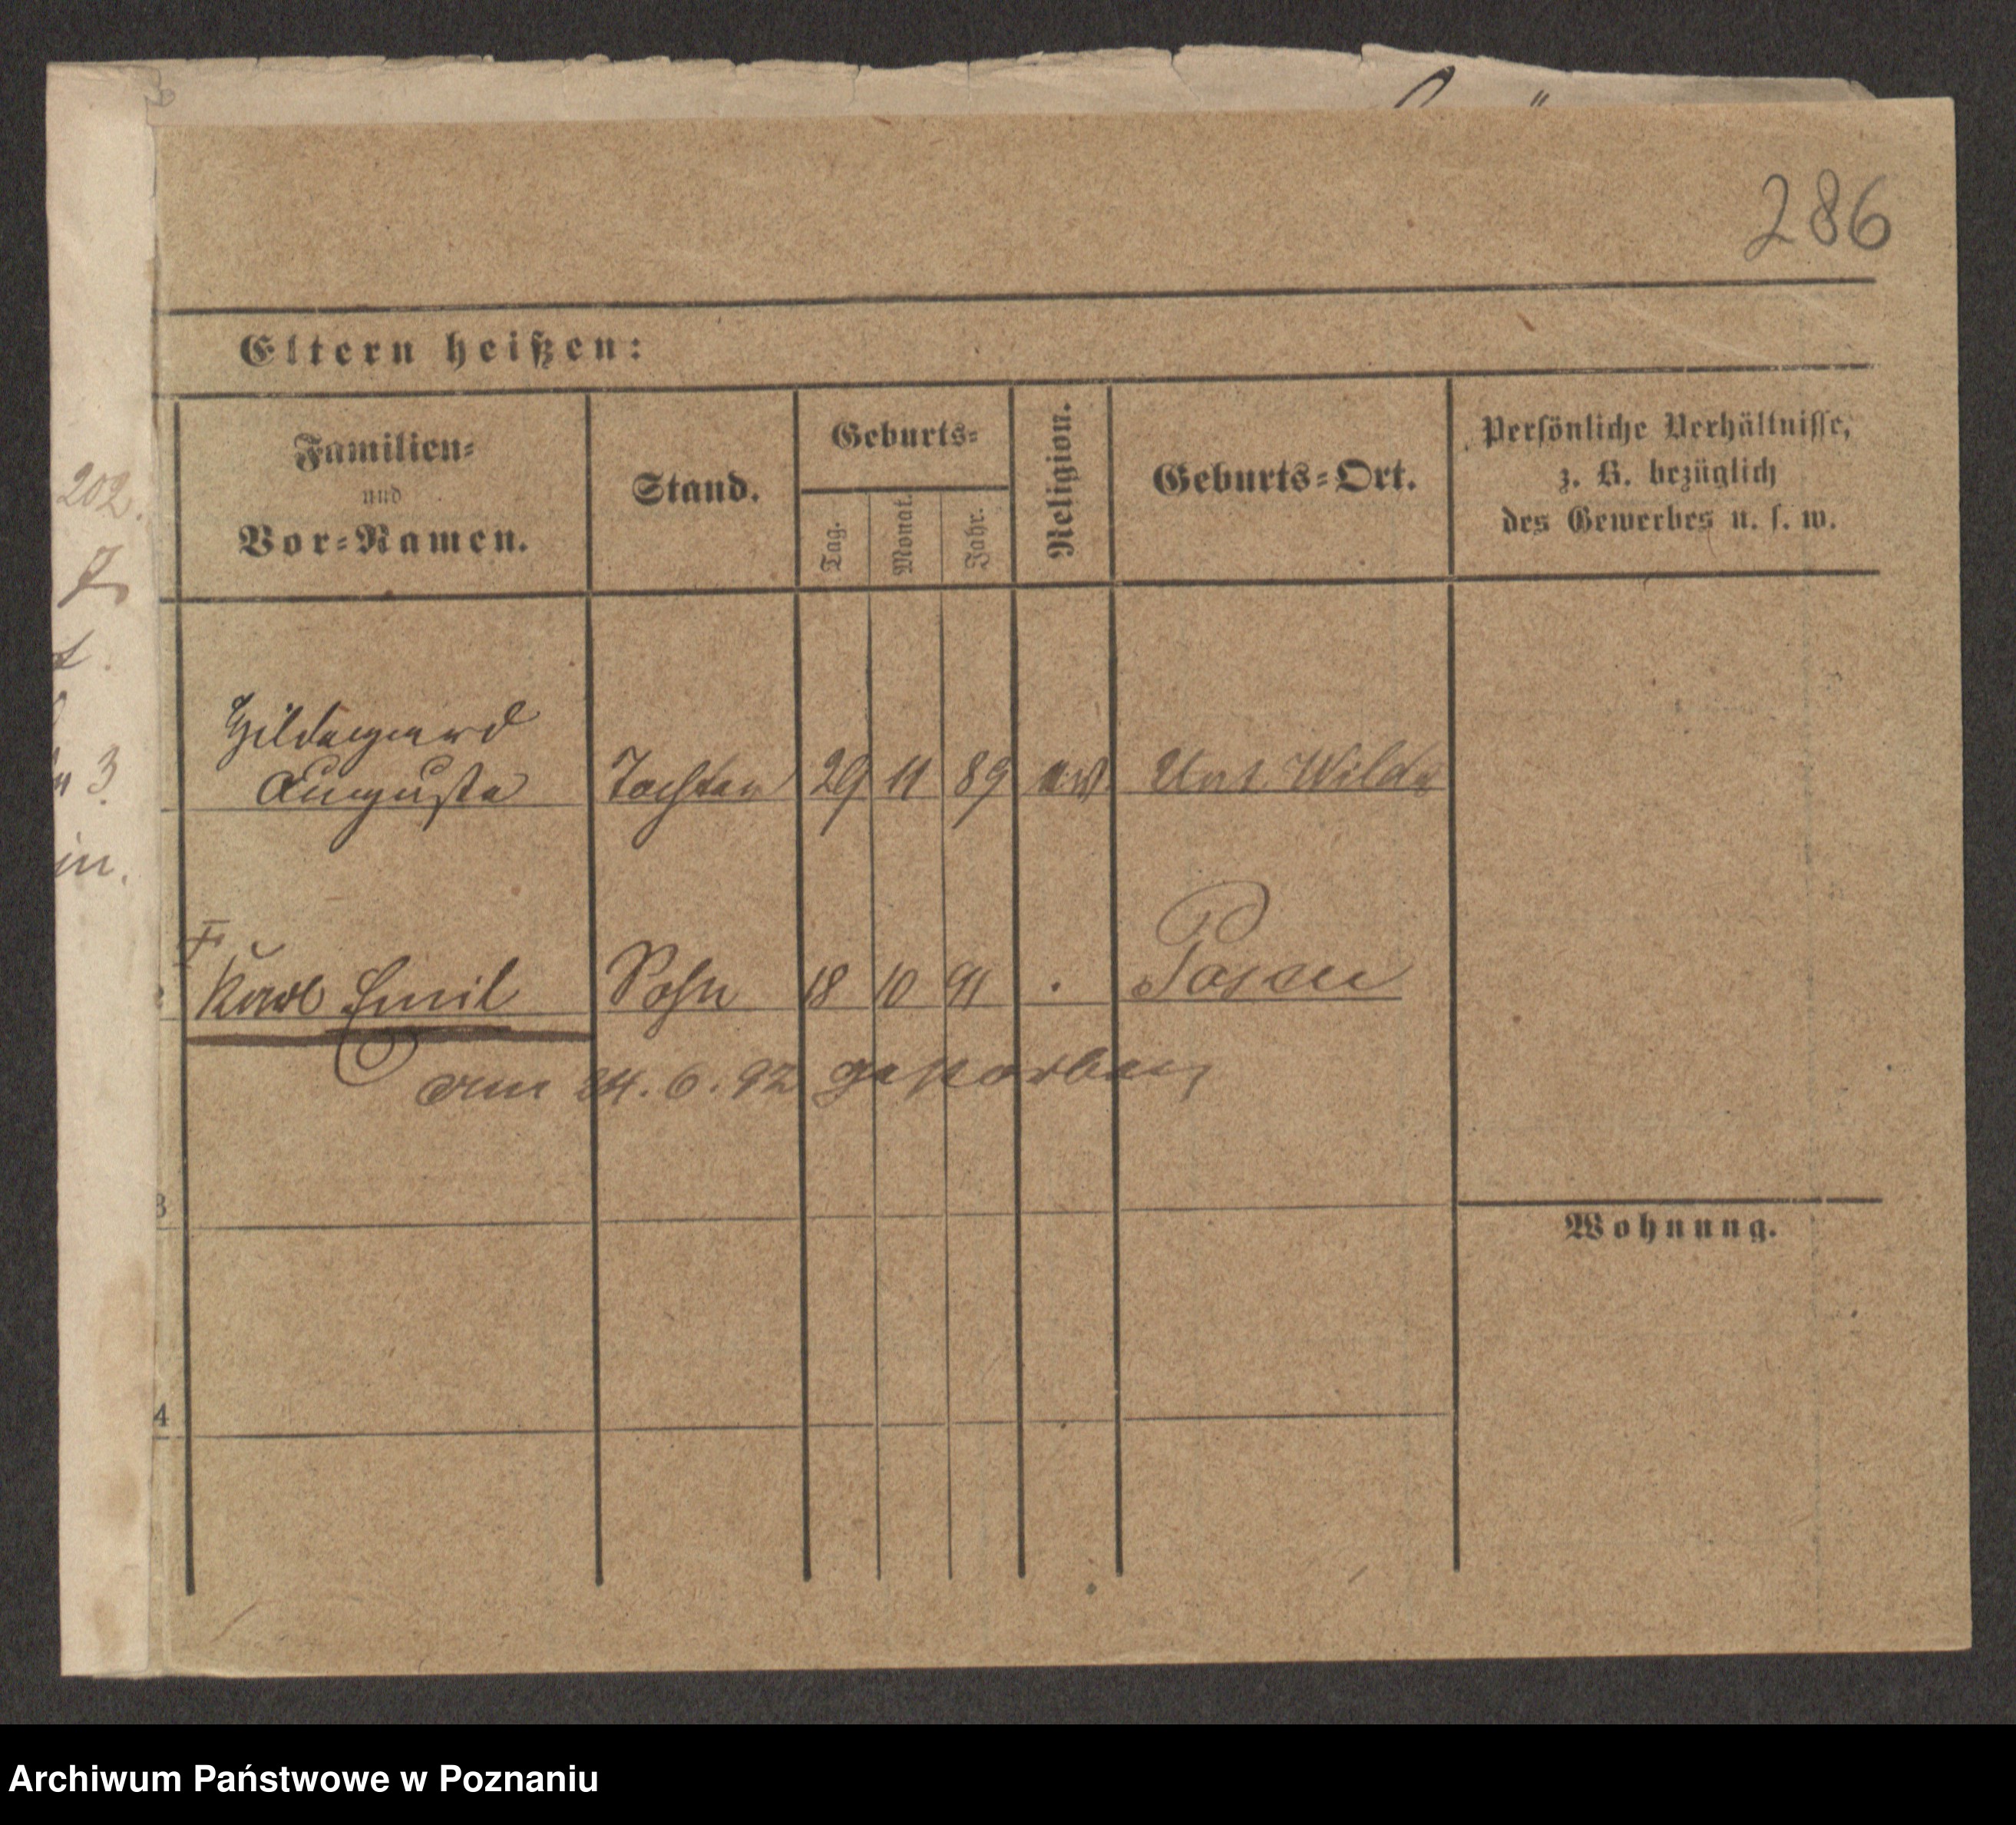 286
Eltern heißen:
Familien-
und
Vor-Namen.
Stand.
Geburts-
Tag.
Monat.
Jahr.
Religion.
Geburts-Ort.
Persönliche Verhältnisse,
z. B. bezüglich
des Gewerbes u. s. w.
202.
Hildegard
Auguste Tochter 29 11 89 ev. Unt. Wilda
in.
Karl Emil Sohn 18 10 91 Posen
am 24. 6. 92 gestorben
3
Wohnung.
4
Archiwum Państwowe w Poznaniu